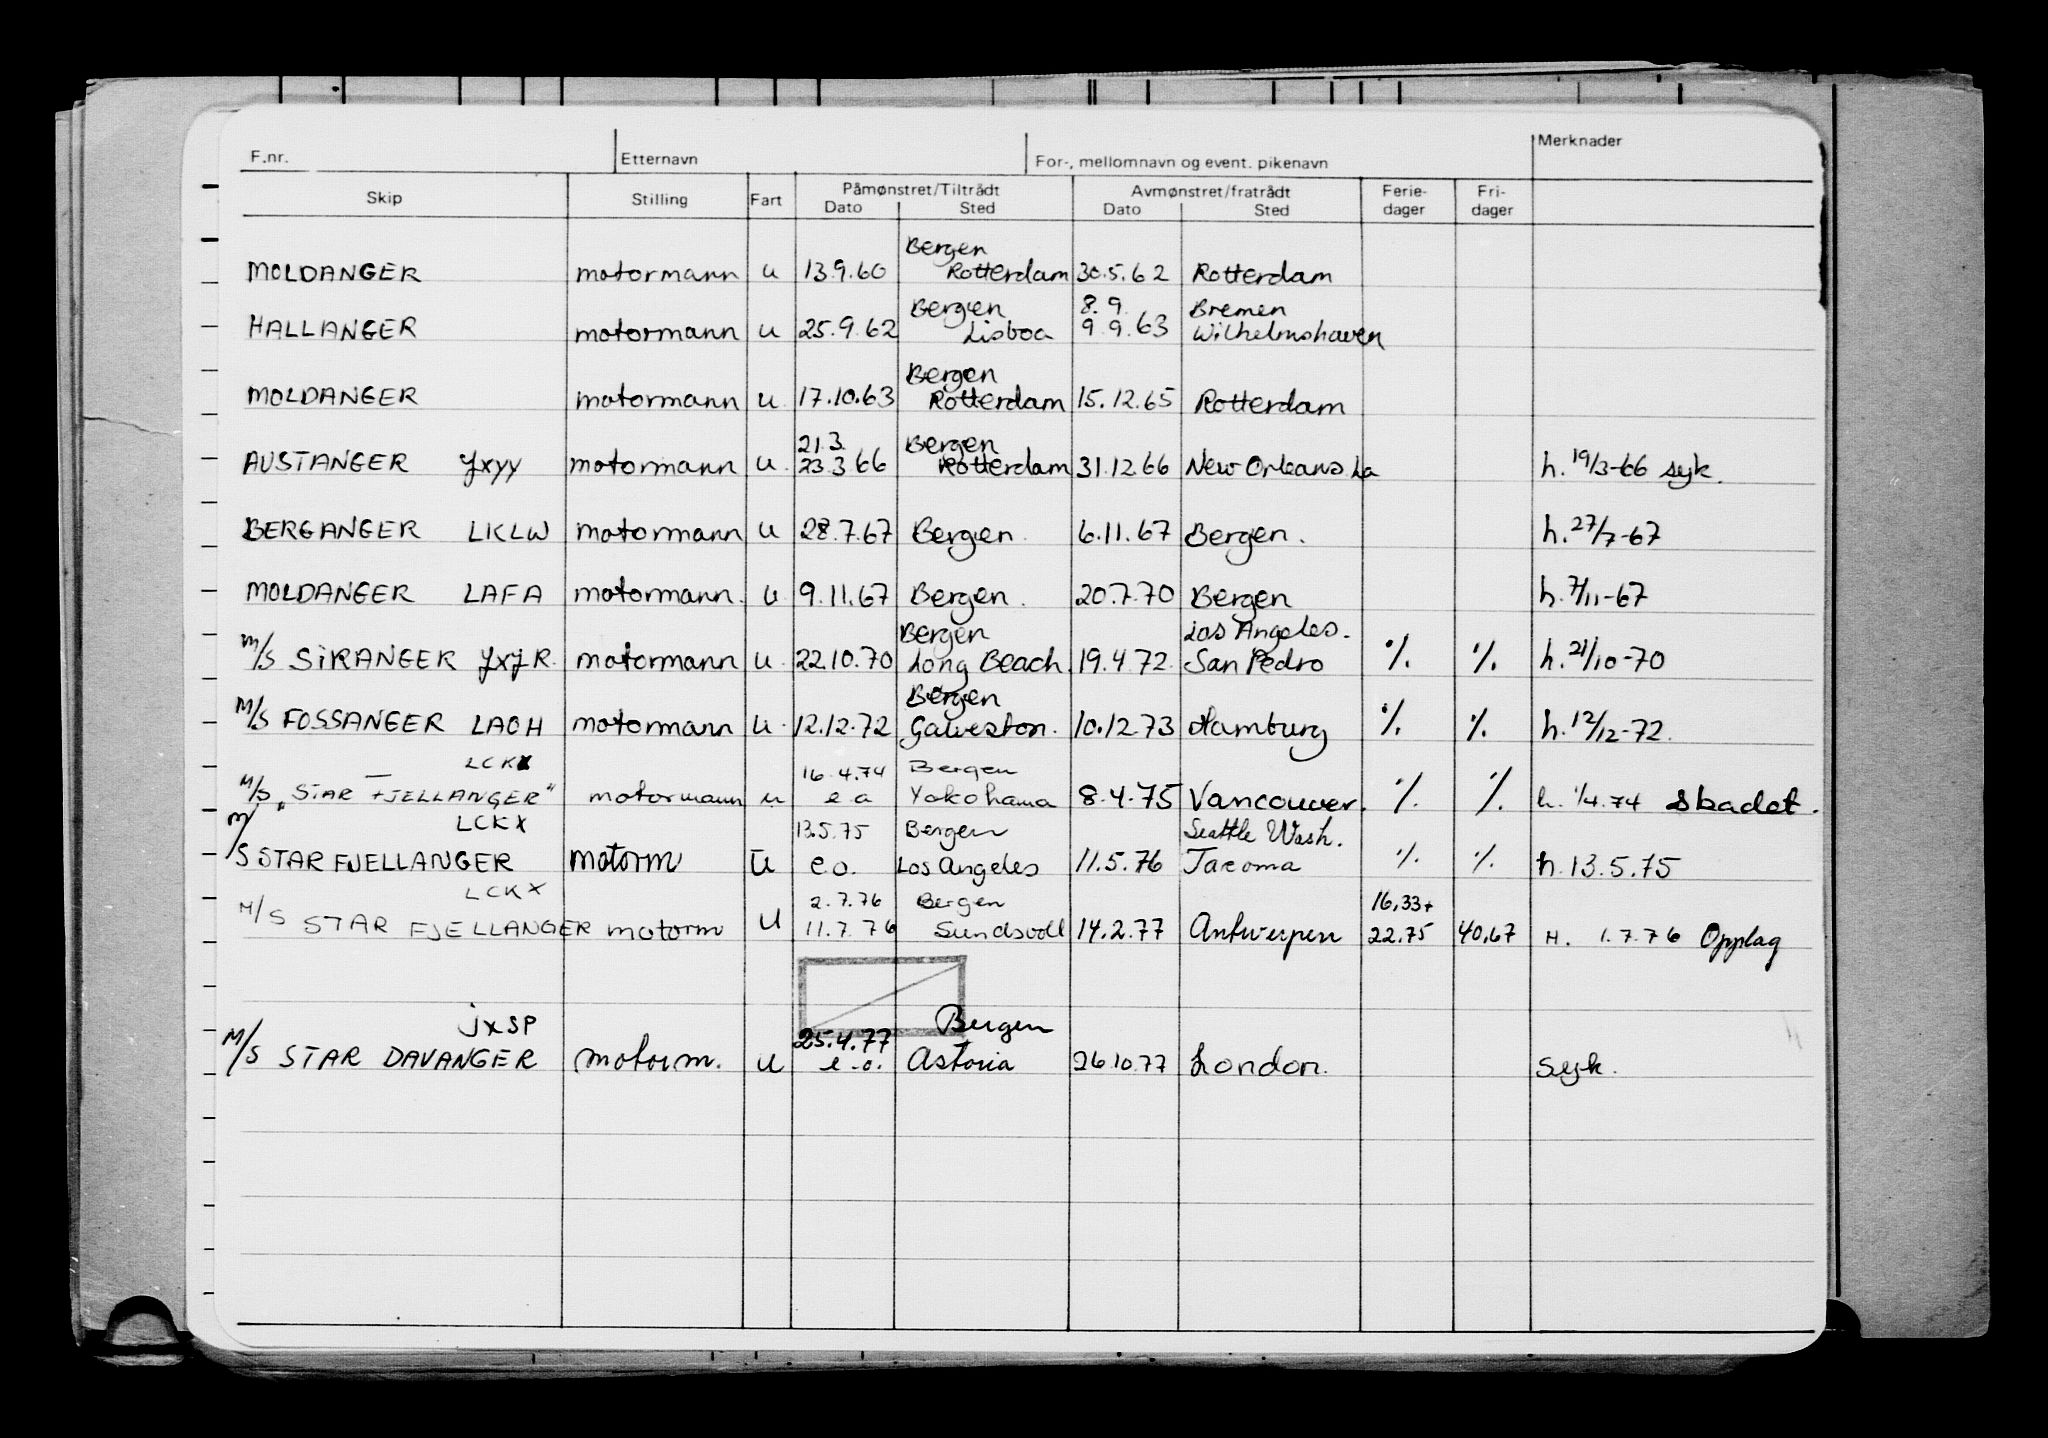 F.nr. Etternavn For-, mellomnavn og event. pikenavn Merknader
Skip Stilling Fart Påmønstret/Tiltrådt Avmønstret/fratrådt Ferie- Fri-
Dato Sted Dato Sted dager dager
Bergen
MOLDANGER motormann u 13.9.60 Rotterdam 30.5.62 Rotterdam
Bergen 8.9. Bremen
HALLANGER motormann u 25.9.62 Lisboa 9.9.63 Wilhelmshaven
Bergen
MOLDANGER motormann u 17.10.63 Rotterdam 15.12.65 Rotterdam
21.3. Bergen
AUSTANGER JXYY motormann u 23.3.66 Rotterdam 31.12.66 New Orleans La h. 19/3-66 syk.
BERGANGER LKLW motormann u 28.7.67 Bergen. 6.11.67 Bergen. h. 27/7-67
MOLDANGER LAFA motormann. u 9.11.67 Bergen. 20.7.70 Bergen h. 7/11-67
Bergen Los Angeles.
M/S SIRANGER JXJR. motormann u. 22.10.70 Long Beach. 19.4.72. San Pedro % % h. 21/10-70
Bergen
M/S FOSSANGER LAOH motormann u. 12.12.72 Galveston. 10.12.73 Hamburg % % h. 12/12-72.
LCKX 16.4.74 Bergen
M/S „STAR FJELLANGER" motormann u e a Yokohama 8.4.75 Vancouver. % % h. 1/4.74 Skadet.
M/ LCKX 13.5.75 Bergen Seattle Wash.
S STAR FJELLANGER motorm u e.o. Los Angeles 11.5.76 Tacoma % % h. 13.5.75
LCKX 2.7.76 Bergen 16,33+
M/S STAR FJELLANGER motorm u 11.7.76 Sundsvall 14.2.77 Antwerpen 22.75 40,67 H. 1.7.76 Opplag
JXSP 25.4.77 Bergen
M/S STAR DAVANGER motorm. u e.o. Astoria 26.10.77 London. Syk.